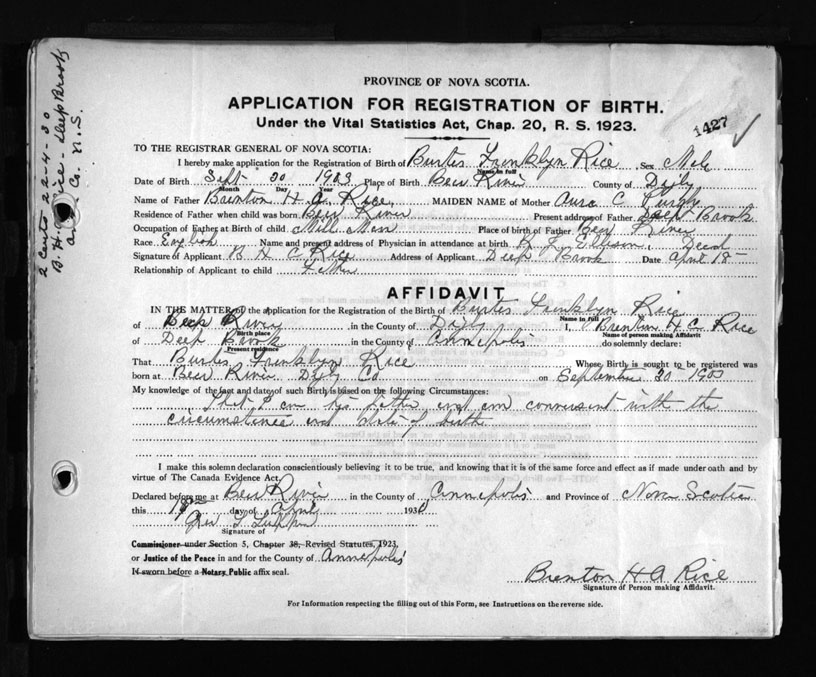 PROVINCE OF NOVA SCOTIA.
APPLICATION FOR REGISTRATION OF BIRTH.
Under the Vital Statistics Act, Chap. 20, R. S. 1923.
1427
TO THE REGISTRAR GENERAL OF NOVA SCOTIA:
I hereby make application for the Registration of Birth of Burtes Franklyn Rice Sex Male
Name in full
Date of Birth Sept 20 1903 Place of Birth Bear River County of Digby
Month Day Year
Name of Father Brenton H. A. Rice MAIDEN NAME of Mother C Purdy
Residence of Father when child was born Bear River Present address of Father Deep Brook
Occupation of Father at Birth of child Mill Man Place of birth of Father Bear River
Race English Name and present address of Physician in attendance at birth Dead
Signature of Applicant B H Rice Address of Applicant Deep Brook Date April 18
Relationship of Applicant to child Father
AFFIDAVIT
IN THE MATTER of the application for the Registration of the Birth of Burtes Franklyn Rice
Name in full
of Bear River in the County of Digby I, Brenton H Rice
Birth place Name of person making Affidavit
of Deep Brook in the County of Annapolis do solemnly declare:
Present residence
That Burtes Franklyn Rice Whose Birth is sought to be registered was
born at Bear River Digby Co on September 20 1903
My knowledge of the fact and date of such Birth is based on the following Circumstances:
That I am his father and am conversant with the
circumstance and date of birth
I make this solemn declaration conscientiously believing it to be true, and knowing that it is of the same force and effect as if made under oath and by
virtue of The Canada Evidence Act.
Declared before me at Bear River in the County of Annapolis and Province of Nova Scotia
this 18 day of April 1930
Geo
Signature of
Commissioner under Section 5, Chapter 38, Revised Statutes, 1923,
or Justice of the Peace in and for the County of Annapolis
If sworn before a Notary Public affix seal.
Brenton H A Rice
Signature of Person making Affidavit.
For Information respecting the filling out of this Form, see Instructions on the reverse side.
2 Certs 22-4-30
B. H. Rice - Deep Brook
Co. N.S.